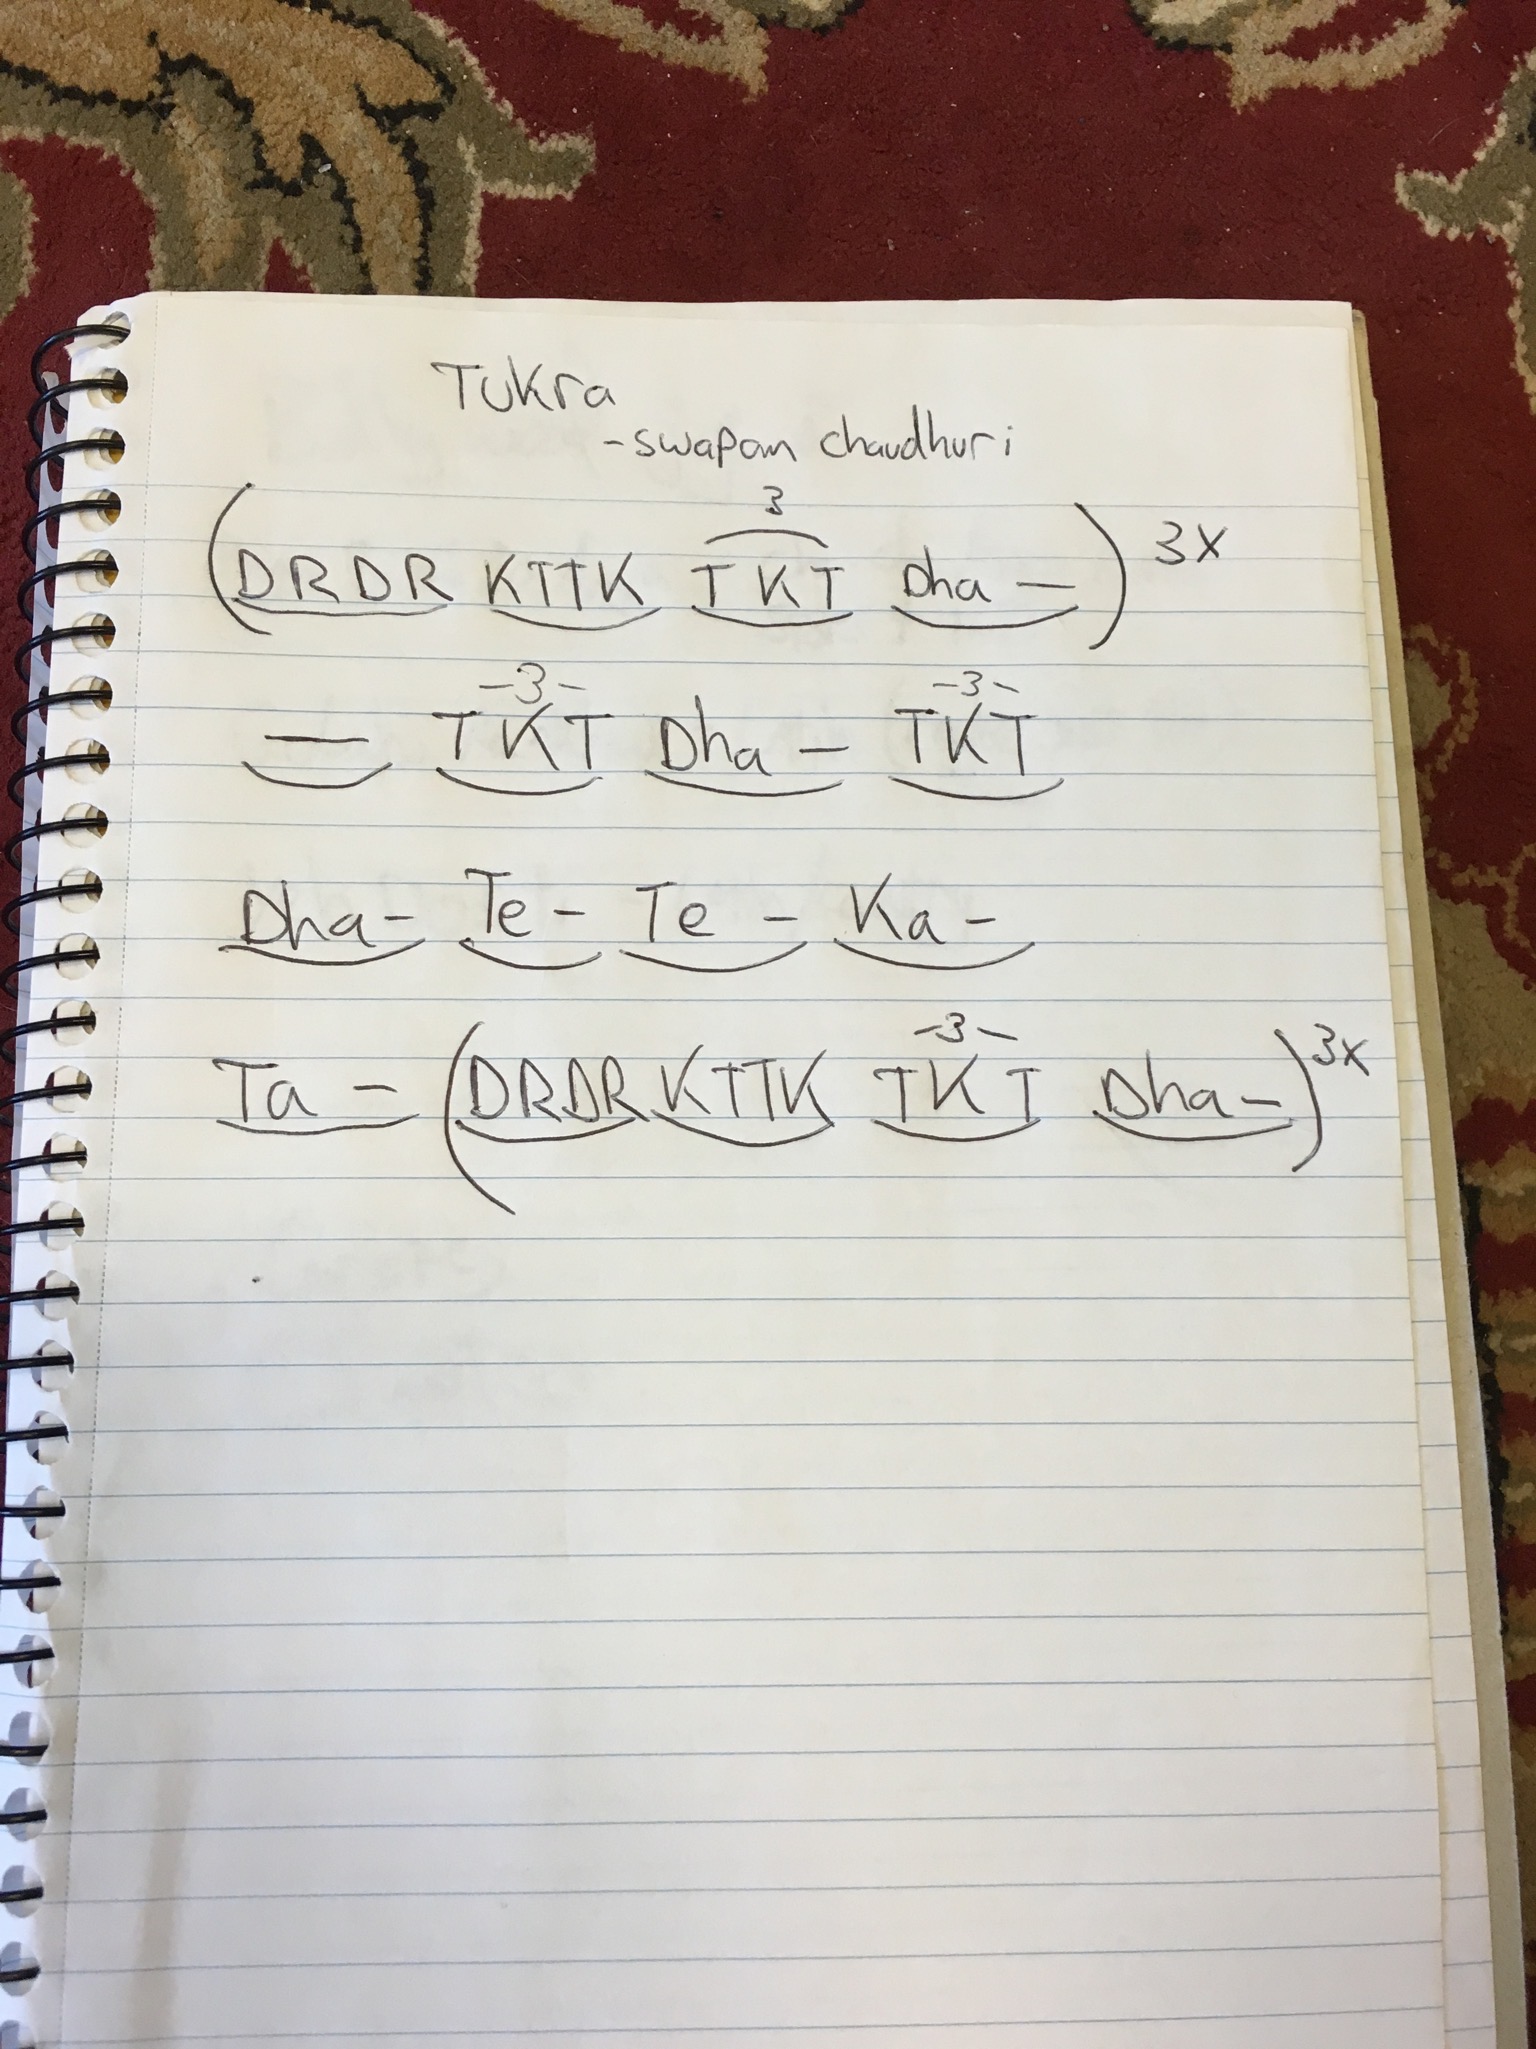 Tukra
- swapan chaudhuri
3
(DRDR KTTK TKT Dha —) 3x
-3- -3-
— TKT Dha — TKT
Dha - Te - Te - Ka -
-3-
Ta - (DRDR KTTK TKT Dha -) 3x